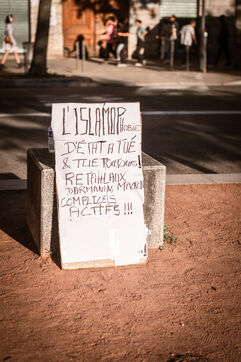 L'ISLAMOPHOBIE
D'ÉTAT A TUÉ
& TUE TOUJOURS!
RETAILLAUX
DARMANIN, MACRON
COMPLICES
ACTIFS !!!